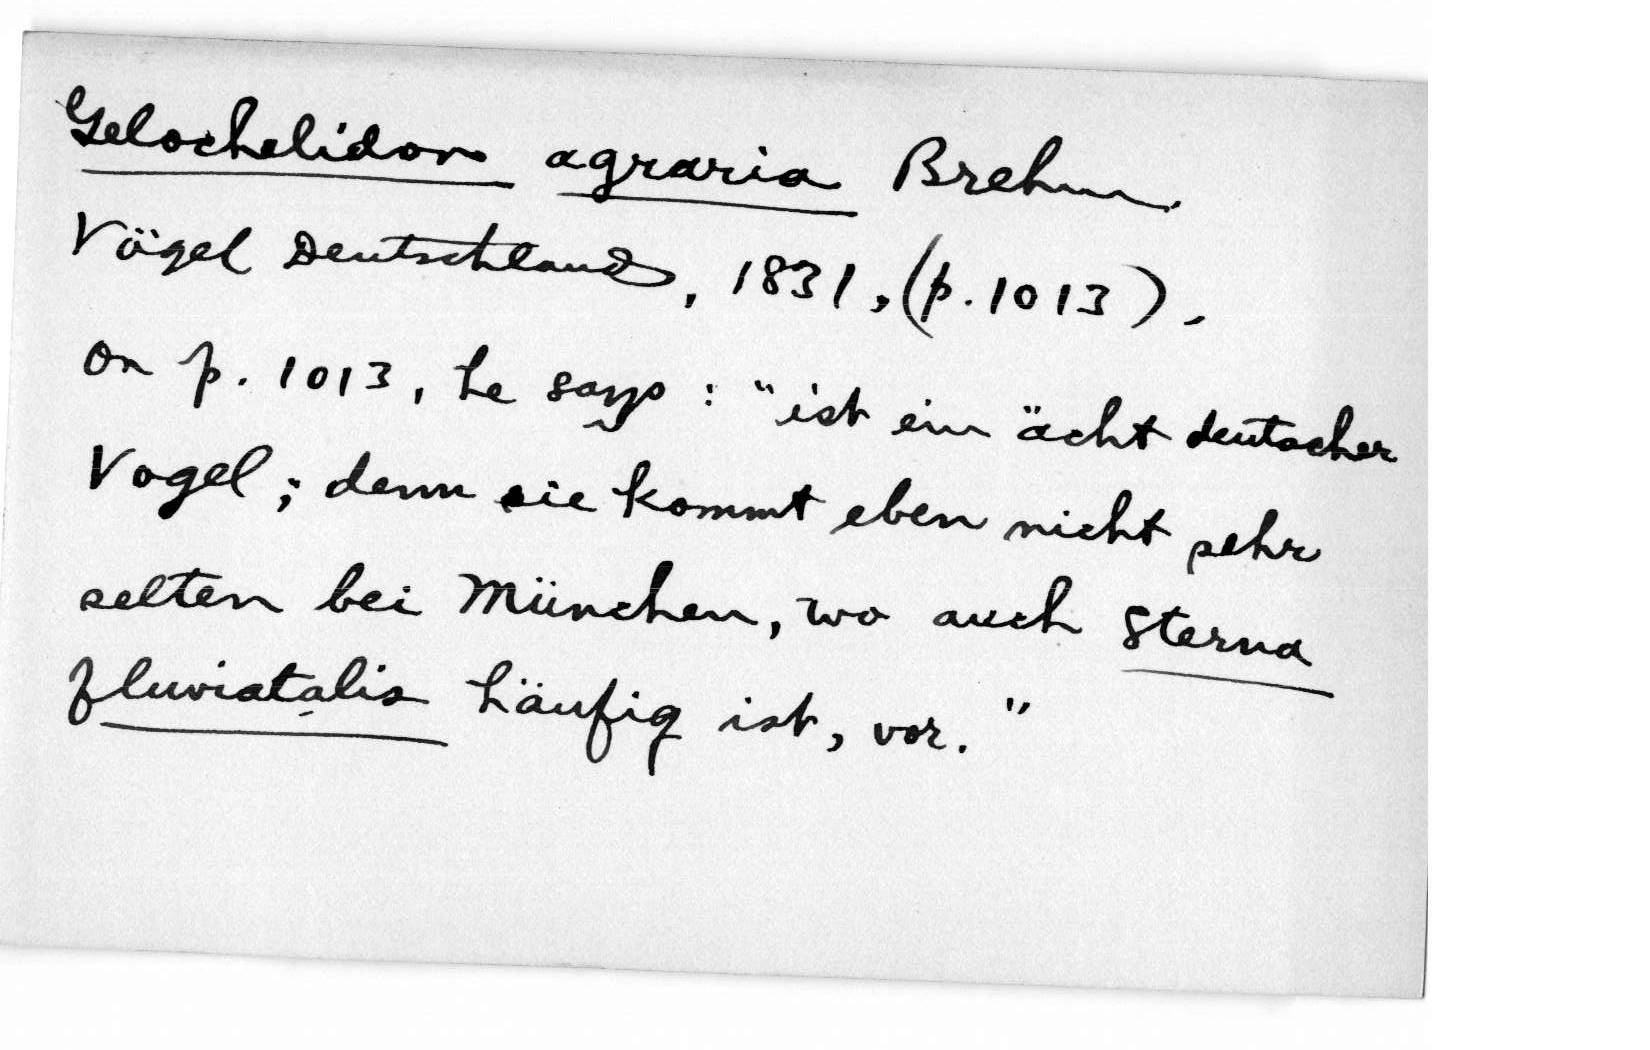 Gelochelidon agraria Brehm.
Vögel Deutschland, 1831, (p. 1013).
On p. 1013, he says: "ist ein ächt deutscher
Vogel; denn sie kommt eben nicht sehr
selten bei München, wo auch Sterna
fluviatalis häufig ist, vor."